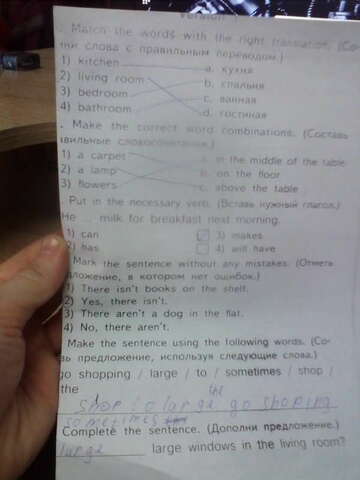 Version
Match the words with the right translation. (Со-
ни слова с правильным переводом.)
1) kitchen a. кухня
2) living room b. спальня
3) bedroom c. ванная
4) bathroom d. гостиная
. Make the correct word combinations. (Составь
авильные словосочетания.)
1) a carpet a. in the middle of the table
2) a lamp b. on the floor
3) flowers c. above the table
Put in the necessary verb. (Вставь нужный глагол.)
He ... milk for breakfast next morning.
1) can 3) makes
2) has 4) will have
Mark the sentence without any mistakes. (Отметь
дложение, в котором нет ошибок.)
1) There isn't books on the shelf.
2) Yes, there isn't.
3) There aren't a dog in the flat.
4) No, there aren't.
Make the sentence using the following words. (Со-
вь предложение, используя следующие слова.)
go shopping / large / to / sometimes / shop /
the
the
shop to large go shoping
sometimes
Complete the sentence. (Дополни предложение.)
large ______ large windows in the living room?